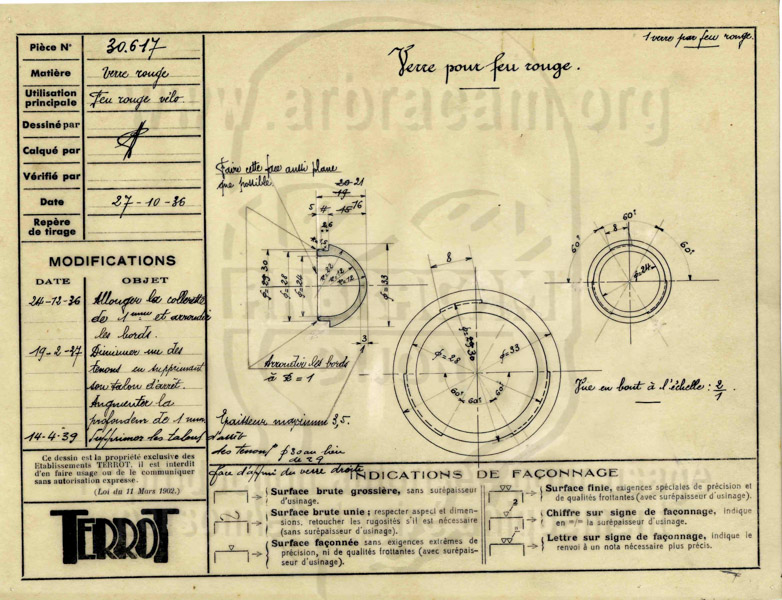 Pièce N° 30.617
Matière Verre rouge
Utilisation principale Feu rouge vélo.
Dessiné par
Calqué par
Vérifié par
Date 27-10-36
Repère de tirage
MODIFICATIONS
DATE OBJET
24-12-36 Allonger la collerette
de 1 mm et arrondir
les bords.
19-2-37 Diminuer un des
tenons en supprimant
son talon d'arrêt.
Augmenter la
profondeur de 1 mm.
14-4-39 Supprimer les talons d'arrêt
des tenons ø 30 au lieu
de 29
face d'appui du verre droite
Ce dessin est la propriété exclusive des
Etablissements TERROT, il est interdit
d'en faire usage ou de le communiquer
sans autorisation expresse.
(Loi du 11 Mars 1902.)
TERROT
1 verre par feu rouge.
Verre pour feu rouge.
www.arbracam.org
Faire cette face aussi plane
que possible
20-21
19
5 4 15 16
ø=29 30
ø=28
ø=24
ø=33
3
Arrondir les bords
à R=1
Epaisseur maximum 3,5.
8
ø=28
ø=29 30
ø=33
60° 60°
60°
60°
8
60°
60°
ø=24
Vue en bout à l'échelle: 2/1
INDICATIONS DE FAÇONNAGE
Surface brute grossière, sans surépaisseur
d'usinage.
Surface brute unie; respecter aspect et dimen-
sions, retoucher les rugosités s'il est nécessaire
(sans surépaisseur d'usinage).
Surface façonnée sans exigences extrêmes de
précision, ni de qualités frottantes (avec surépais-
seur d'usinage).
Surface finie, exigences spéciales de précision et
de qualités frottantes (avec surépaisseur d'usinage).
Chiffre sur signe de façonnage, indique
en =/= la surépaisseur d'usinage.
Lettre sur signe de façonnage, indique le
renvoi à un nota nécessaire plus précis.